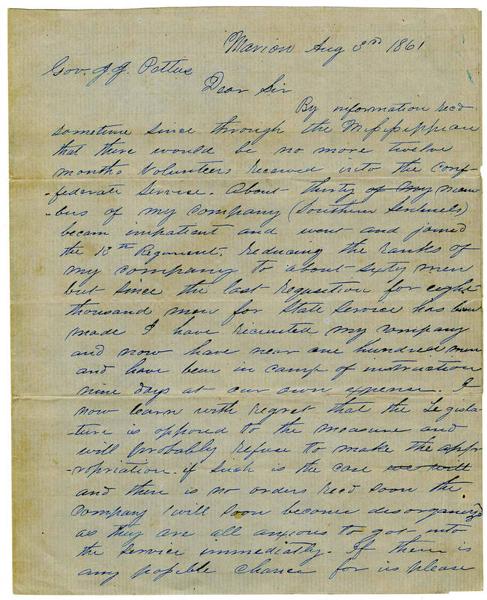 Marion Aug 3rd 1861
Gov. J. J. Pettus
Dear Sir
By information recd
sometime since through the Mississippian
that there would be no more twelve
months Volunteers received into the Conf-
-federate Service. About thirty of my mem
-bers of my company (Southern Sentinels)
becam impatient and went and joined
the 13th Regiment. reducing the ranks of
my company to about sixty men
but since the last requsition for eight
thousand men for State Service has been
made I have recruited my company
and now have near one hundred men
and have been in camp of instruction
nine days at our own expense. I
now learn with regret that the Legisla-
-ture is opposed to the measure and
will probably refuse to make the appr
-ropriation. if such is the case
and there is no orders recd soon the
Company will soon become desorganized
as they are all anxious to get into
the Service immediatly. If there is
any possible chance for us please